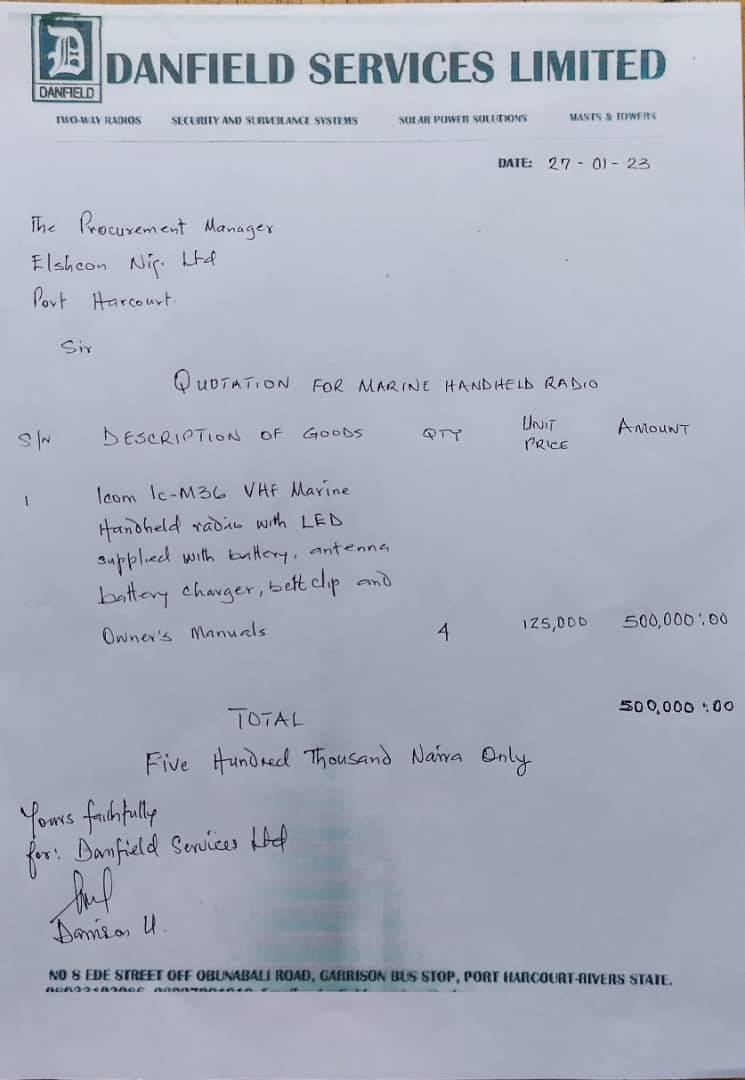 D
DANFIELD
DANFIELD SERVICES LIMITED
TWO-WAY RADIOS SECURITY AND SURVEILANCE SYSTEMS SOLAR POWER SOLUTIONS MASTS & TOWERS
DATE: 27-01-23
The Procurement Manager
Elshcon Nig. Ltd
Port Harcourt.
Sir
QUOTATION FOR MARINE HANDHELD RADIO
S/N DESCRIPTION OF GOODS QTY UNIT PRICE AMOUNT
1 Icom Ic-M36 VHF Marine
Handheld radio with LED
supplied with battery, antenna
battery charger, belt clip and
Owner's Manuals 4 125,000 500,000:00
TOTAL 500,000:00
Five Hundred Thousand Naira Only
Yours faithfully
for: Danfield Services Ltd
Damison U.
NO 8 EDE STREET OFF OBUNABALI ROAD, GARRISON BUS STOP, PORT HARCOURT-RIVERS STATE.